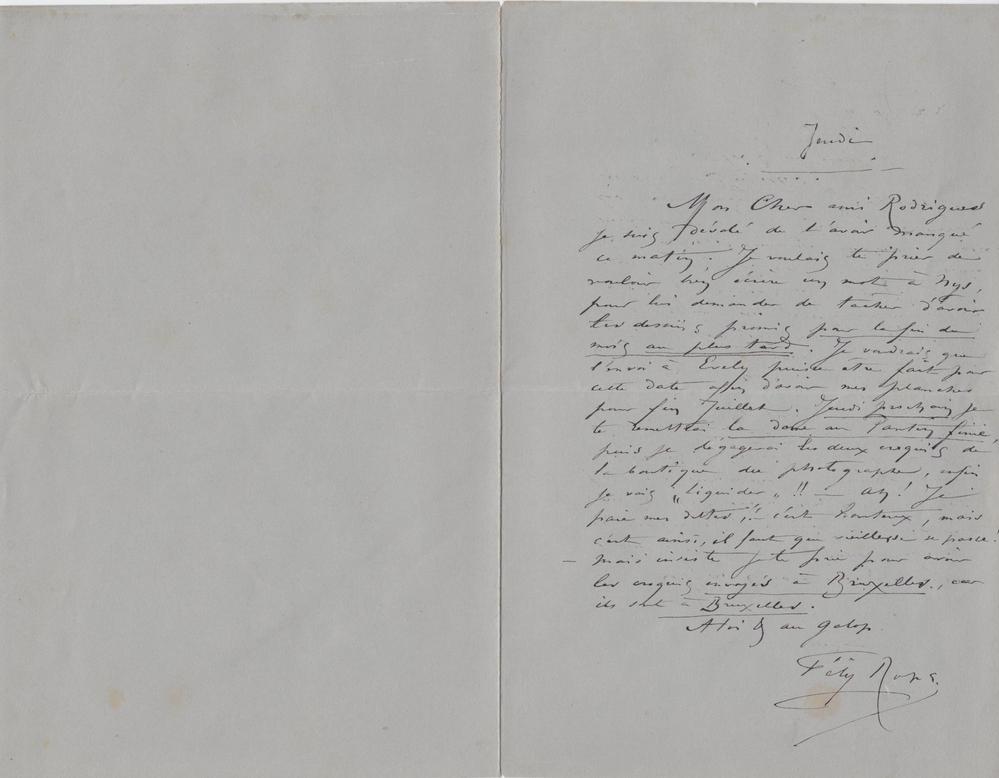 Jeudi
Mon Cher ami Rodrigues
Je suis désolé de t'avoir manqué
ce matin. Je voulais te prier de
vouloir bien écrire un mot à Nys,
pour lui demander de tacher d'avoir
les dessins promis pour la fin du
mois au plus tard. Je voudrais que
l'envoi à Evely puisse être fait pour
cette date afin d'avoir mes planches
pour fin Juillet. Jeudi prochain je
te remettrai la dame au Pantin finie,
puis je dégagerai les deux croquis de
la boutique du photographe, enfin
je vais „liquider„ !! — Ah! Je
paie mes dettes,!! c'est honteux, mais
c'est ainsi, il faut que vieillesse se passe!
— Mais insiste je te prie pour avoir
les croquis envoyés à Bruxelles., car
ils sont à Bruxelles.
A toi & au galop
Fély Rops.